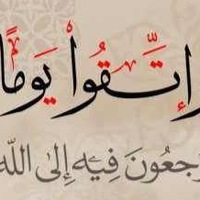 وَإتَّقُواْ يَوْماً
رجَعُونَ فِيهِ إلَى اللَّه